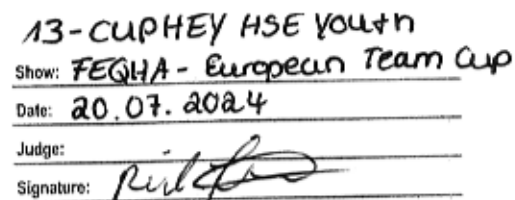 13-CUPHEY HSE Youth
Show: FEQHA - European Team Cup
Date: 20.07.2024
Judge:
Signature: